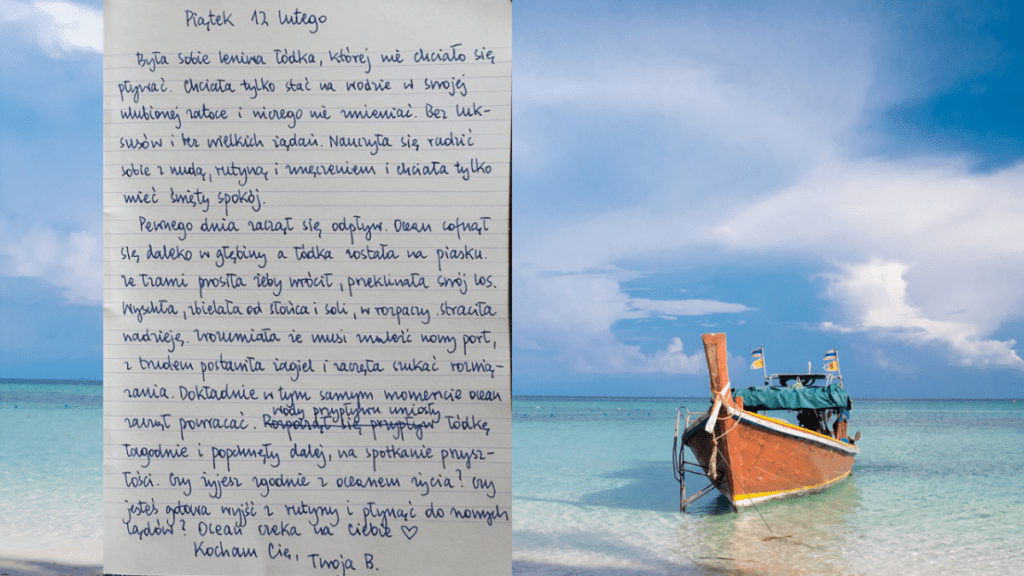 Piątek 12 lutego
Była sobie leniwa łódka, której nie chciało się
pływać. Chciała tylko stać na wodzie w swojej
ulubionej zatoce i niczego nie zmieniać. Bez luk-
susów i bez wielkich żądań. Nauczyła się radzić
sobie z nudą, rutyną i zmęczeniem i chciała tylko
mieć święty spokój.
Pewnego dnia zaczął się odpływ. Ocean cofnął
się daleko w głębiny a łódka została na piasku.
Ze łzami prosiła żeby wrócił, przeklinała swój los.
Wyschła, zbielała od słońca i soli, w rozpaczy straciła
nadzieję. Zrozumiała że musi znaleźć nowy port,
z trudem postawiła żagiel i zaczęła szukać rozwią-
zania. Dokładnie w tym samym momencie ocean
wody przypływu uniosły
zaczął powracać. Rozpoczął się przypływ łódkę
łagodnie i popchnęły dalej, na spotkanie przysz-
łości. Czy żyjesz zgodnie z oceanem życia? Czy
jesteś gotowa wyjść z rutyny i płynąć do nowych
lądów? Ocean czeka na Ciebie ♡
Kocham Cię,
Twoja B.